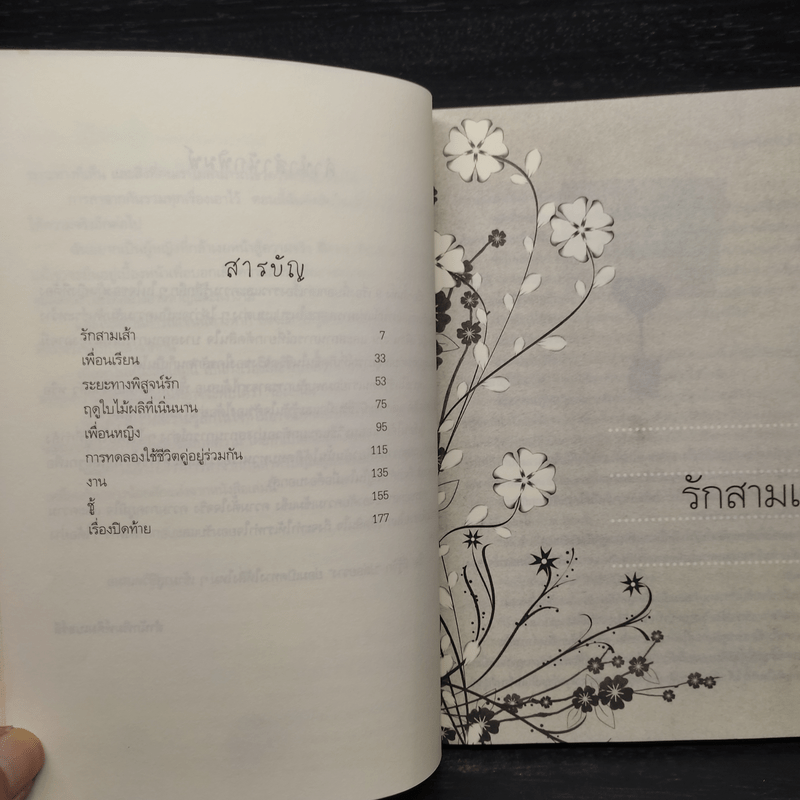 สารบัญ
รักสามเส้า 7
เพื่อนเรียน 33
ระยะทางพิสูจน์รัก 53
ฤดูใบไม้ผลิที่เนิ่นนาน 75
เพื่อนหญิง 95
การทดลองใช้ชีวิตคู่อยู่ร่วมกัน 115
งาน 135
ชู้ 155
เรื่องปิดท้าย 177
รักสามเ